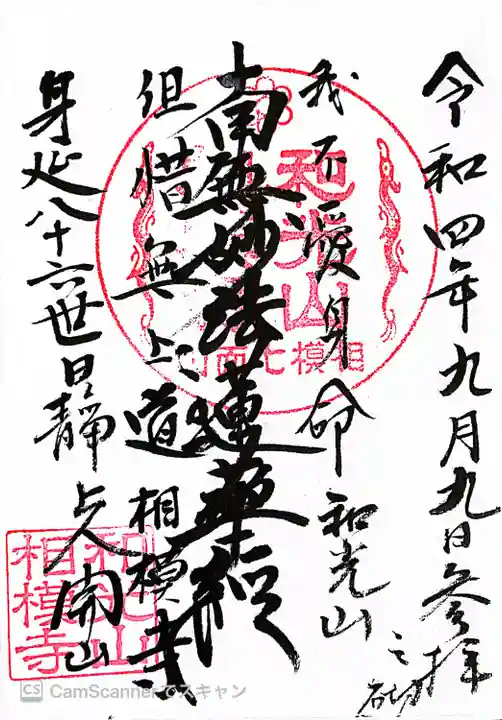 令和四年九月九日参拝之砌
我不愛身命 和光山
南無妙法蓮華経
但惜無上道 相模寺
身延八十六世日靜上人開山
和光山
相模七面山
和光山
相模寺
CS CamScannerでスキャン